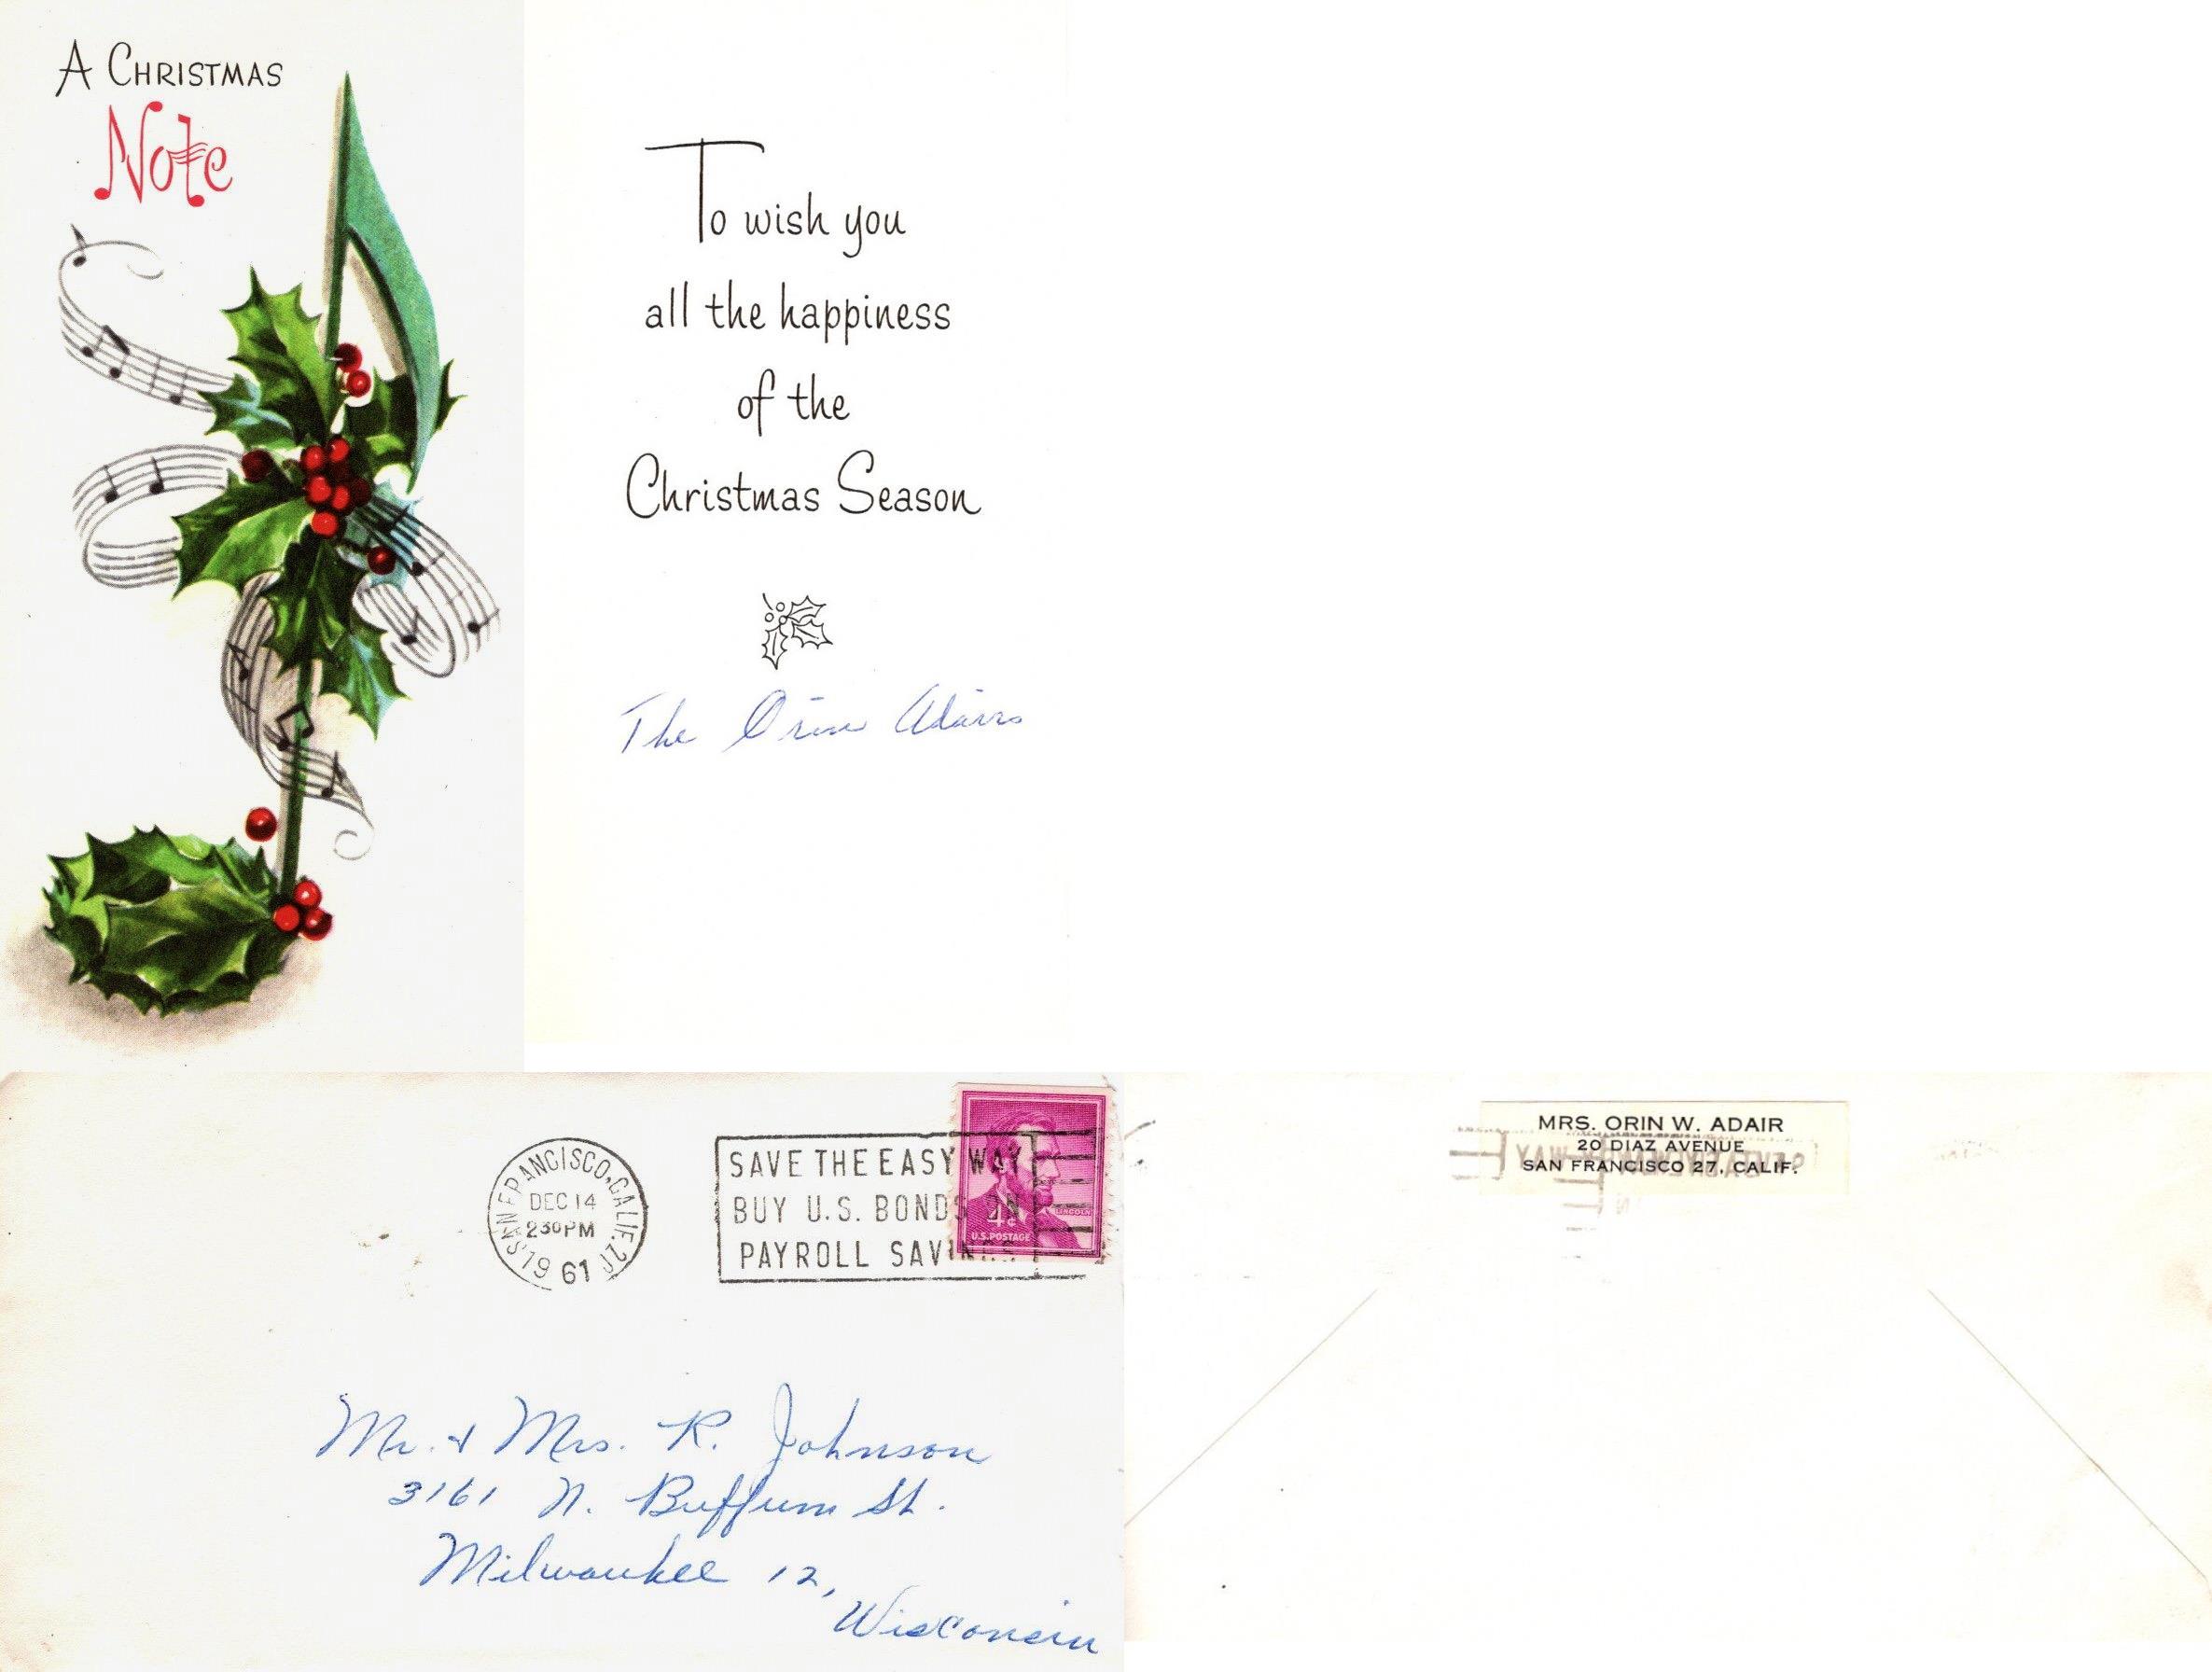 A CHRISTMAS
Note
To wish you
all the happiness
of the
Christmas Season
The Orin Adairs
SAN FRANCISCO, CALIF.
DEC 14
230 PM
1961
SAVE THE EASY WAY
BUY U.S. BONDS ON
PAYROLL SAVINGS
4¢
LINCOLN
U.S. POSTAGE
Mr. & Mrs. R. Johnson
3161 N. Buffum St.
Milwaukee 12,
Wisconsin
MRS. ORIN W. ADAIR
20 DIAZ AVENUE
SAN FRANCISCO 27, CALIF.